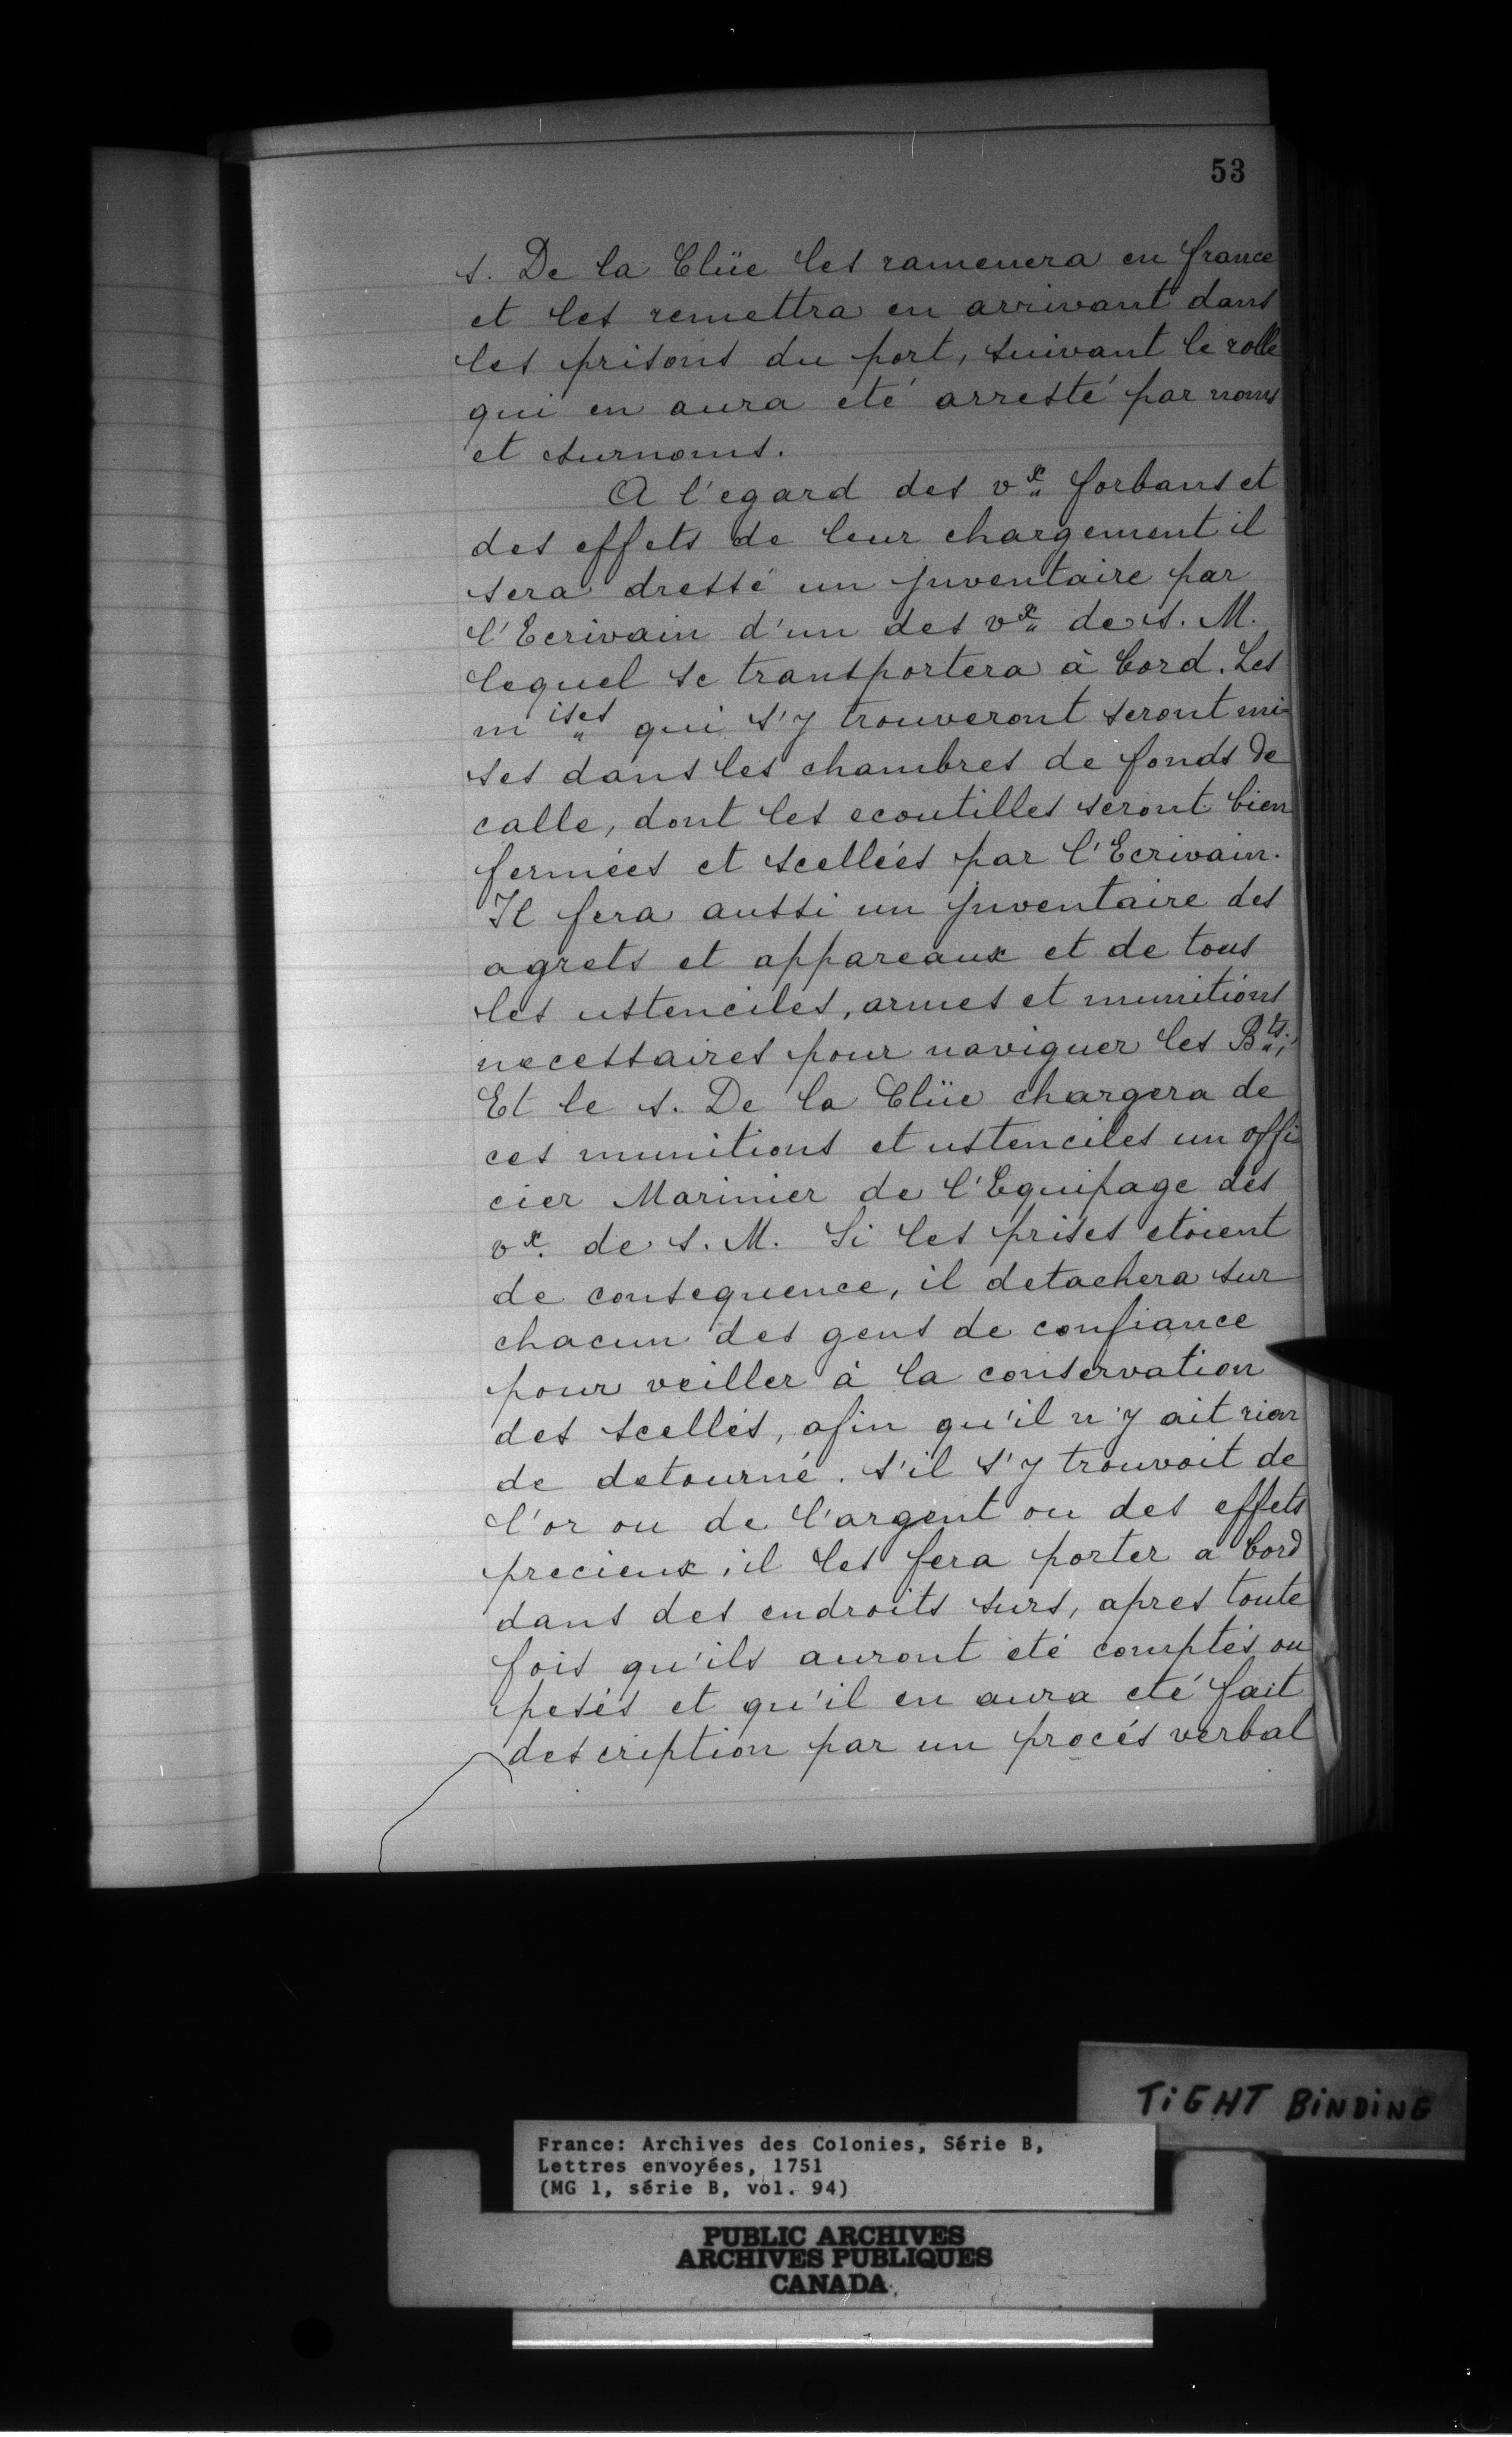 53
s. De la Clüe les ramenera en france
et les remettra en arrivant dans
les prisons du port, suivant le rolle
qui en aura eté arresté par noms
et surnoms.
A l'egard des vx. forbans et
des effets de leur chargement il
sera dressé un Jnventaire par
l'Ecrivain d'un des vx. de S. M.
lequel se transportera à bord. Les
mises qui s'y trouveront seront mi-
ses dans les chambres de fonds de
calle, dont les ecoutilles seront bien
fermées et scelléés par l'Ecrivain.
Il fera aussi un Jnventaire des
agrets et appareaux et de tous
les ustenciles, armes et munitions
necessaires pour naviguer les Bts;
Et le s. De la Clüe chargera de
ces munitions et ustenciles un offi
cier Marinier de l'Equipage des
vx. de S. M. Si les prises etoient
de consequence, il detachera sur
chacun des gens de confiance
pour veiller à la conservation
des scellés, afin qu'il n'y ait rien
de detourné. S'il s'y trouvoit de
l'or ou de l'argent ou des effets
precieux, il les fera porter a bord
dans des endroits surs, apres toute
fois qu'ils auront eté comptés ou
pesés et qu'il en aura eté fait
description par un procés verbal
TIGHT BINDING
France: Archives des Colonies, Série B,
Lettres envoyées, 1751
(MG 1, série B, vol. 94)
PUBLIC ARCHIVES
ARCHIVES PUBLIQUES
CANADA